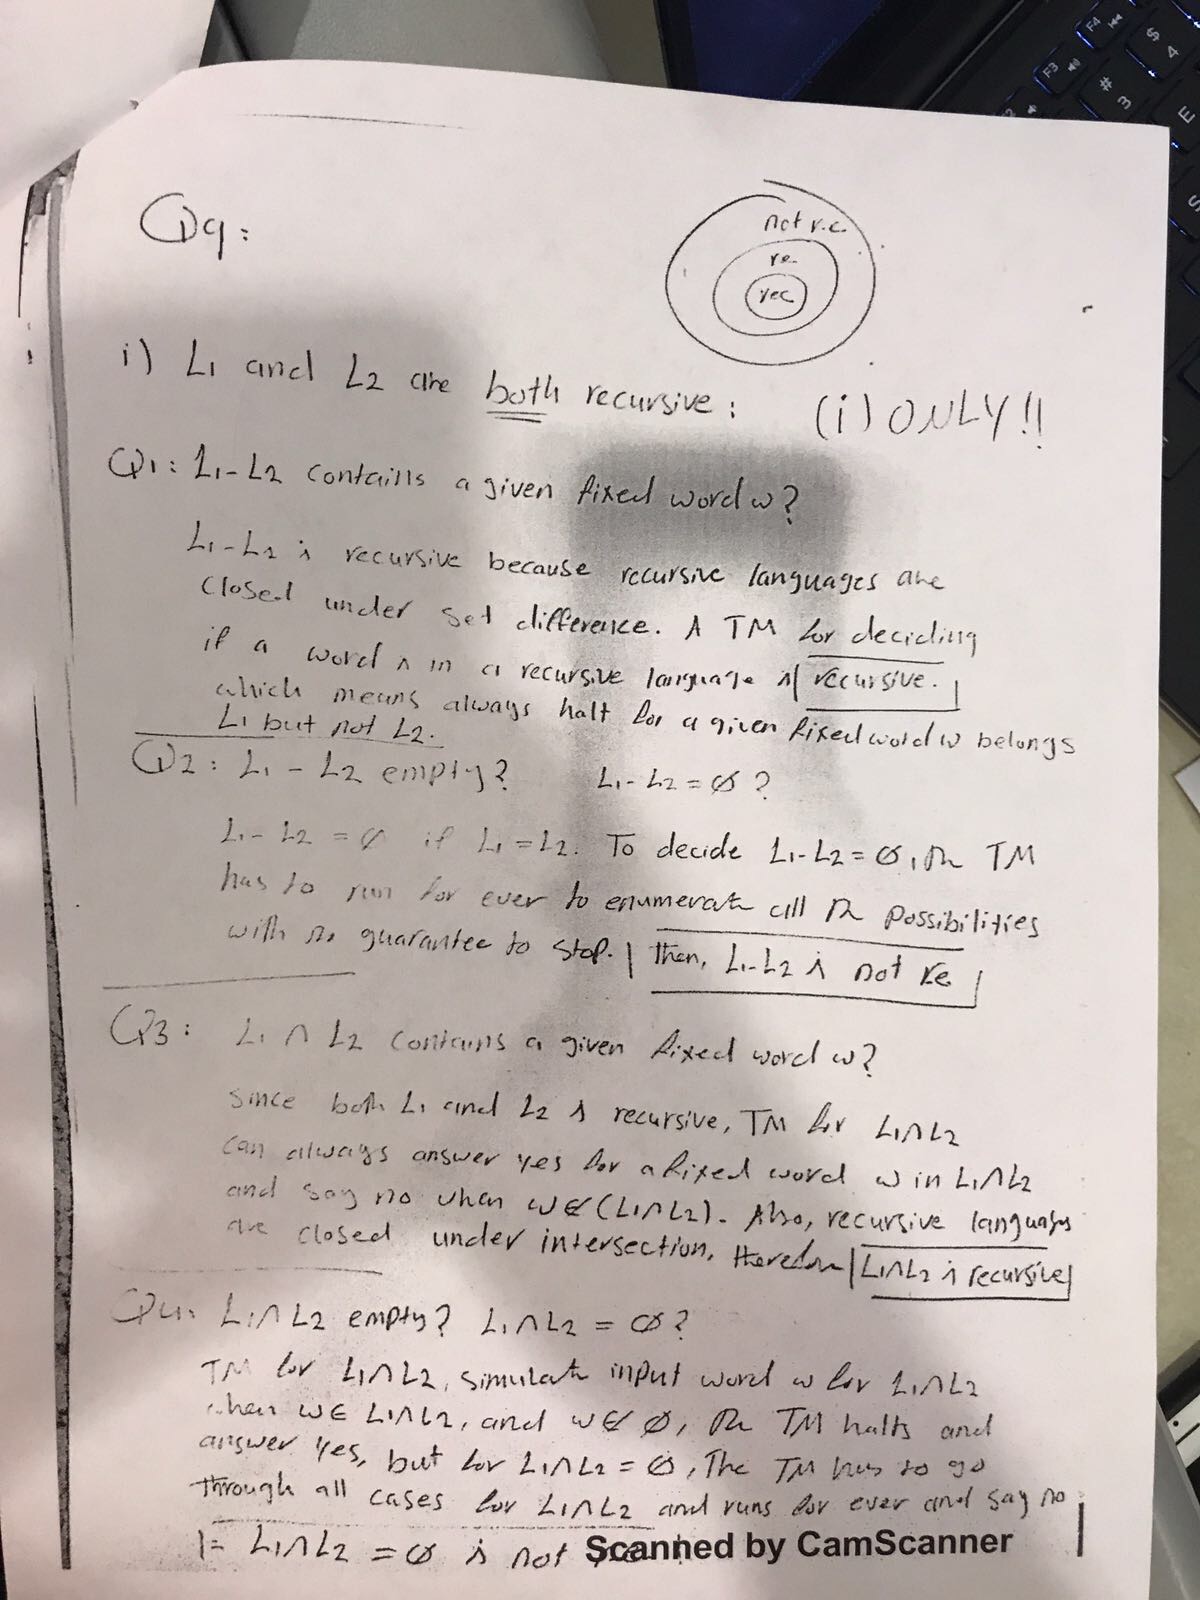 Q9:
not r.e.
r.e.
rec
i) L1 and L2 are both recursive: (i) ONLY!!
Q1: L1-L2 contains a given fixed word w?
L1-L2 is recursive because recursive languages are
closed under set difference. A TM for deciding
if a word is in a recursive language is recursive.
which means always halt for a given fixed word w belongs
L1 but not L2.
Q2: L1 - L2 empty? L1-L2 = ∅ ?
L1-L2 = ∅ if L1=L2. To decide L1-L2=∅, the TM
has to run for ever to enumerate all the possibilities
with no guarantee to stop. Then, L1-L2 is not re
Q3: L1 ∩ L2 contains a given fixed word w?
since both L1 and L2 is recursive, TM for L1∩L2
can always answer yes for a fixed word w in L1∩L2
and say no when w∉(L1∩L2). Also, recursive languages
are closed under intersection, therefore L1∩L2 is recursive
Q4: L1∩L2 empty? L1∩L2 = ∅?
TM for L1∩L2, simulate input word w for L1∩L2
when w∈ L1∩L2, and w∉ ∅, the TM halts and
answer yes, but for L1∩L2 = ∅, The TM has to go
through all cases for L1∩L2 and runs for ever and say no
L1∩L2 = ∅ is not
Scanned by CamScanner
F4
F3
$
4
#
3
E